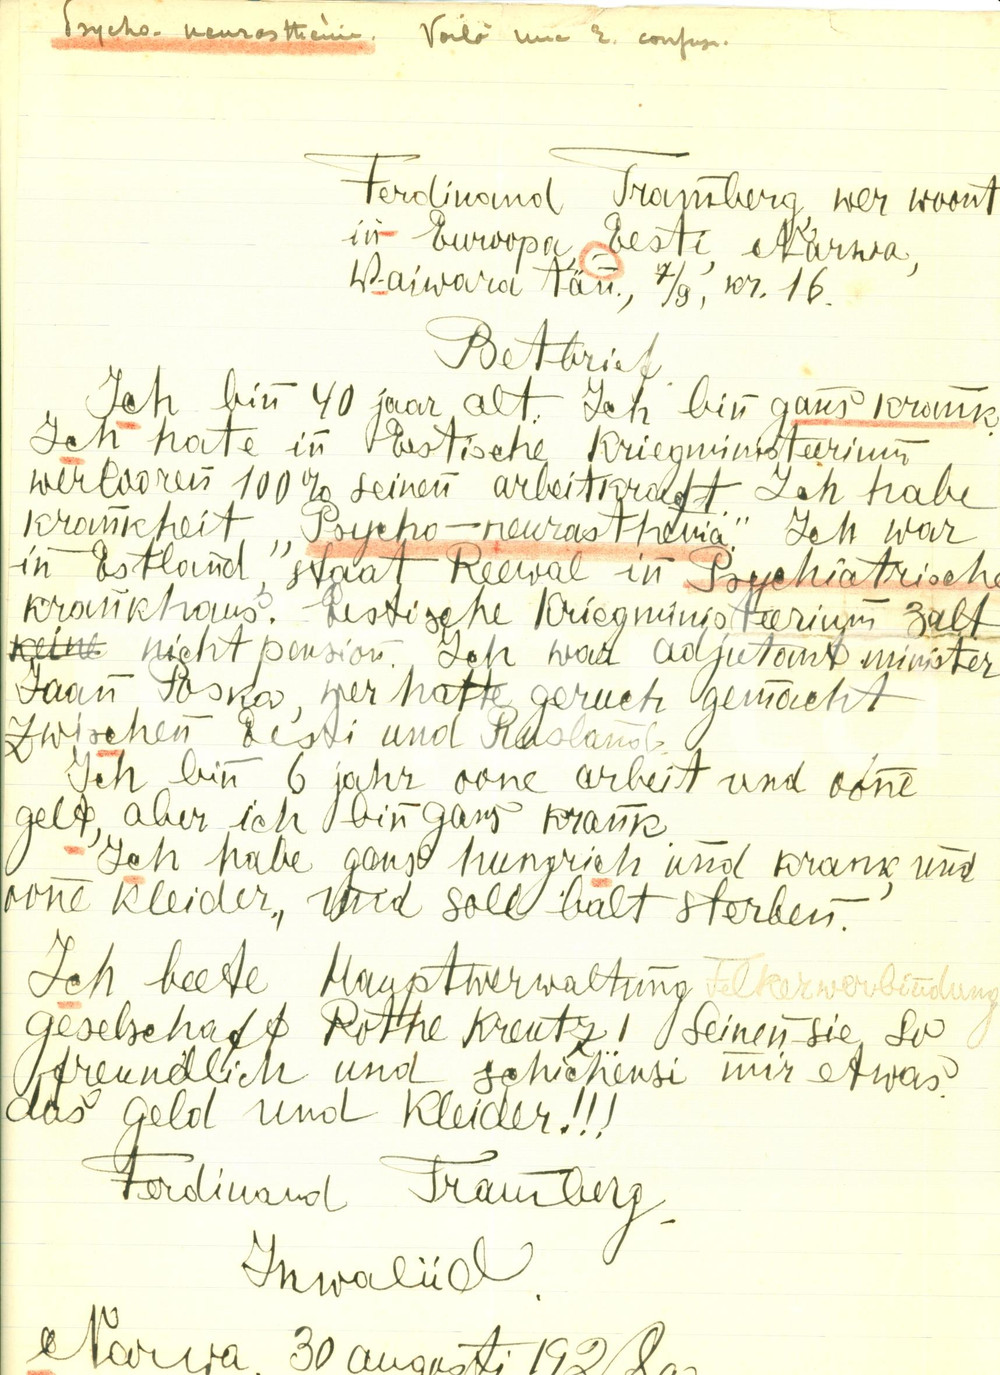 Psycho-neurasthénie. Voilà une
Ferdinand Tramberg, wer woont
in Euroopa, Eesti, Narwa,
Waiwara tän., 7/9, kr. 16.
Betbrief.
Ich bin 40 jaar alt. Ich bin gans krank.
Ich hate in Eestische Kriegministeerium
werlooren 100% seinen arbeitkraft. Ich habe
krankheit „Psycho-neurasthenia." Ich war
in Estland, staat Reewal in Psychiatrische
krankhaus. Eestische Kriegministeerium zalt
keine nicht pension. Ich war adjutant minister
Jaan Poska, wer hatte geruch gemacht
zwischen Eesti und Rusland.
Ich bin 6 jahr oone arbeit und oone
geld, aber ich bin gans krank
Ich habe gans hungrich und krank, und
oone kleider, und soll balt sterben.
Ich beete Hauptwerwaltung Felkerwerbindung
geselschaft Rothe Kreutz! Seinen sie so
freundlich und schickensi mir etwas
das geld und kleider!!!
Ferdinand Tramberg.
Inwaliid.
Narwa, 30 augusti